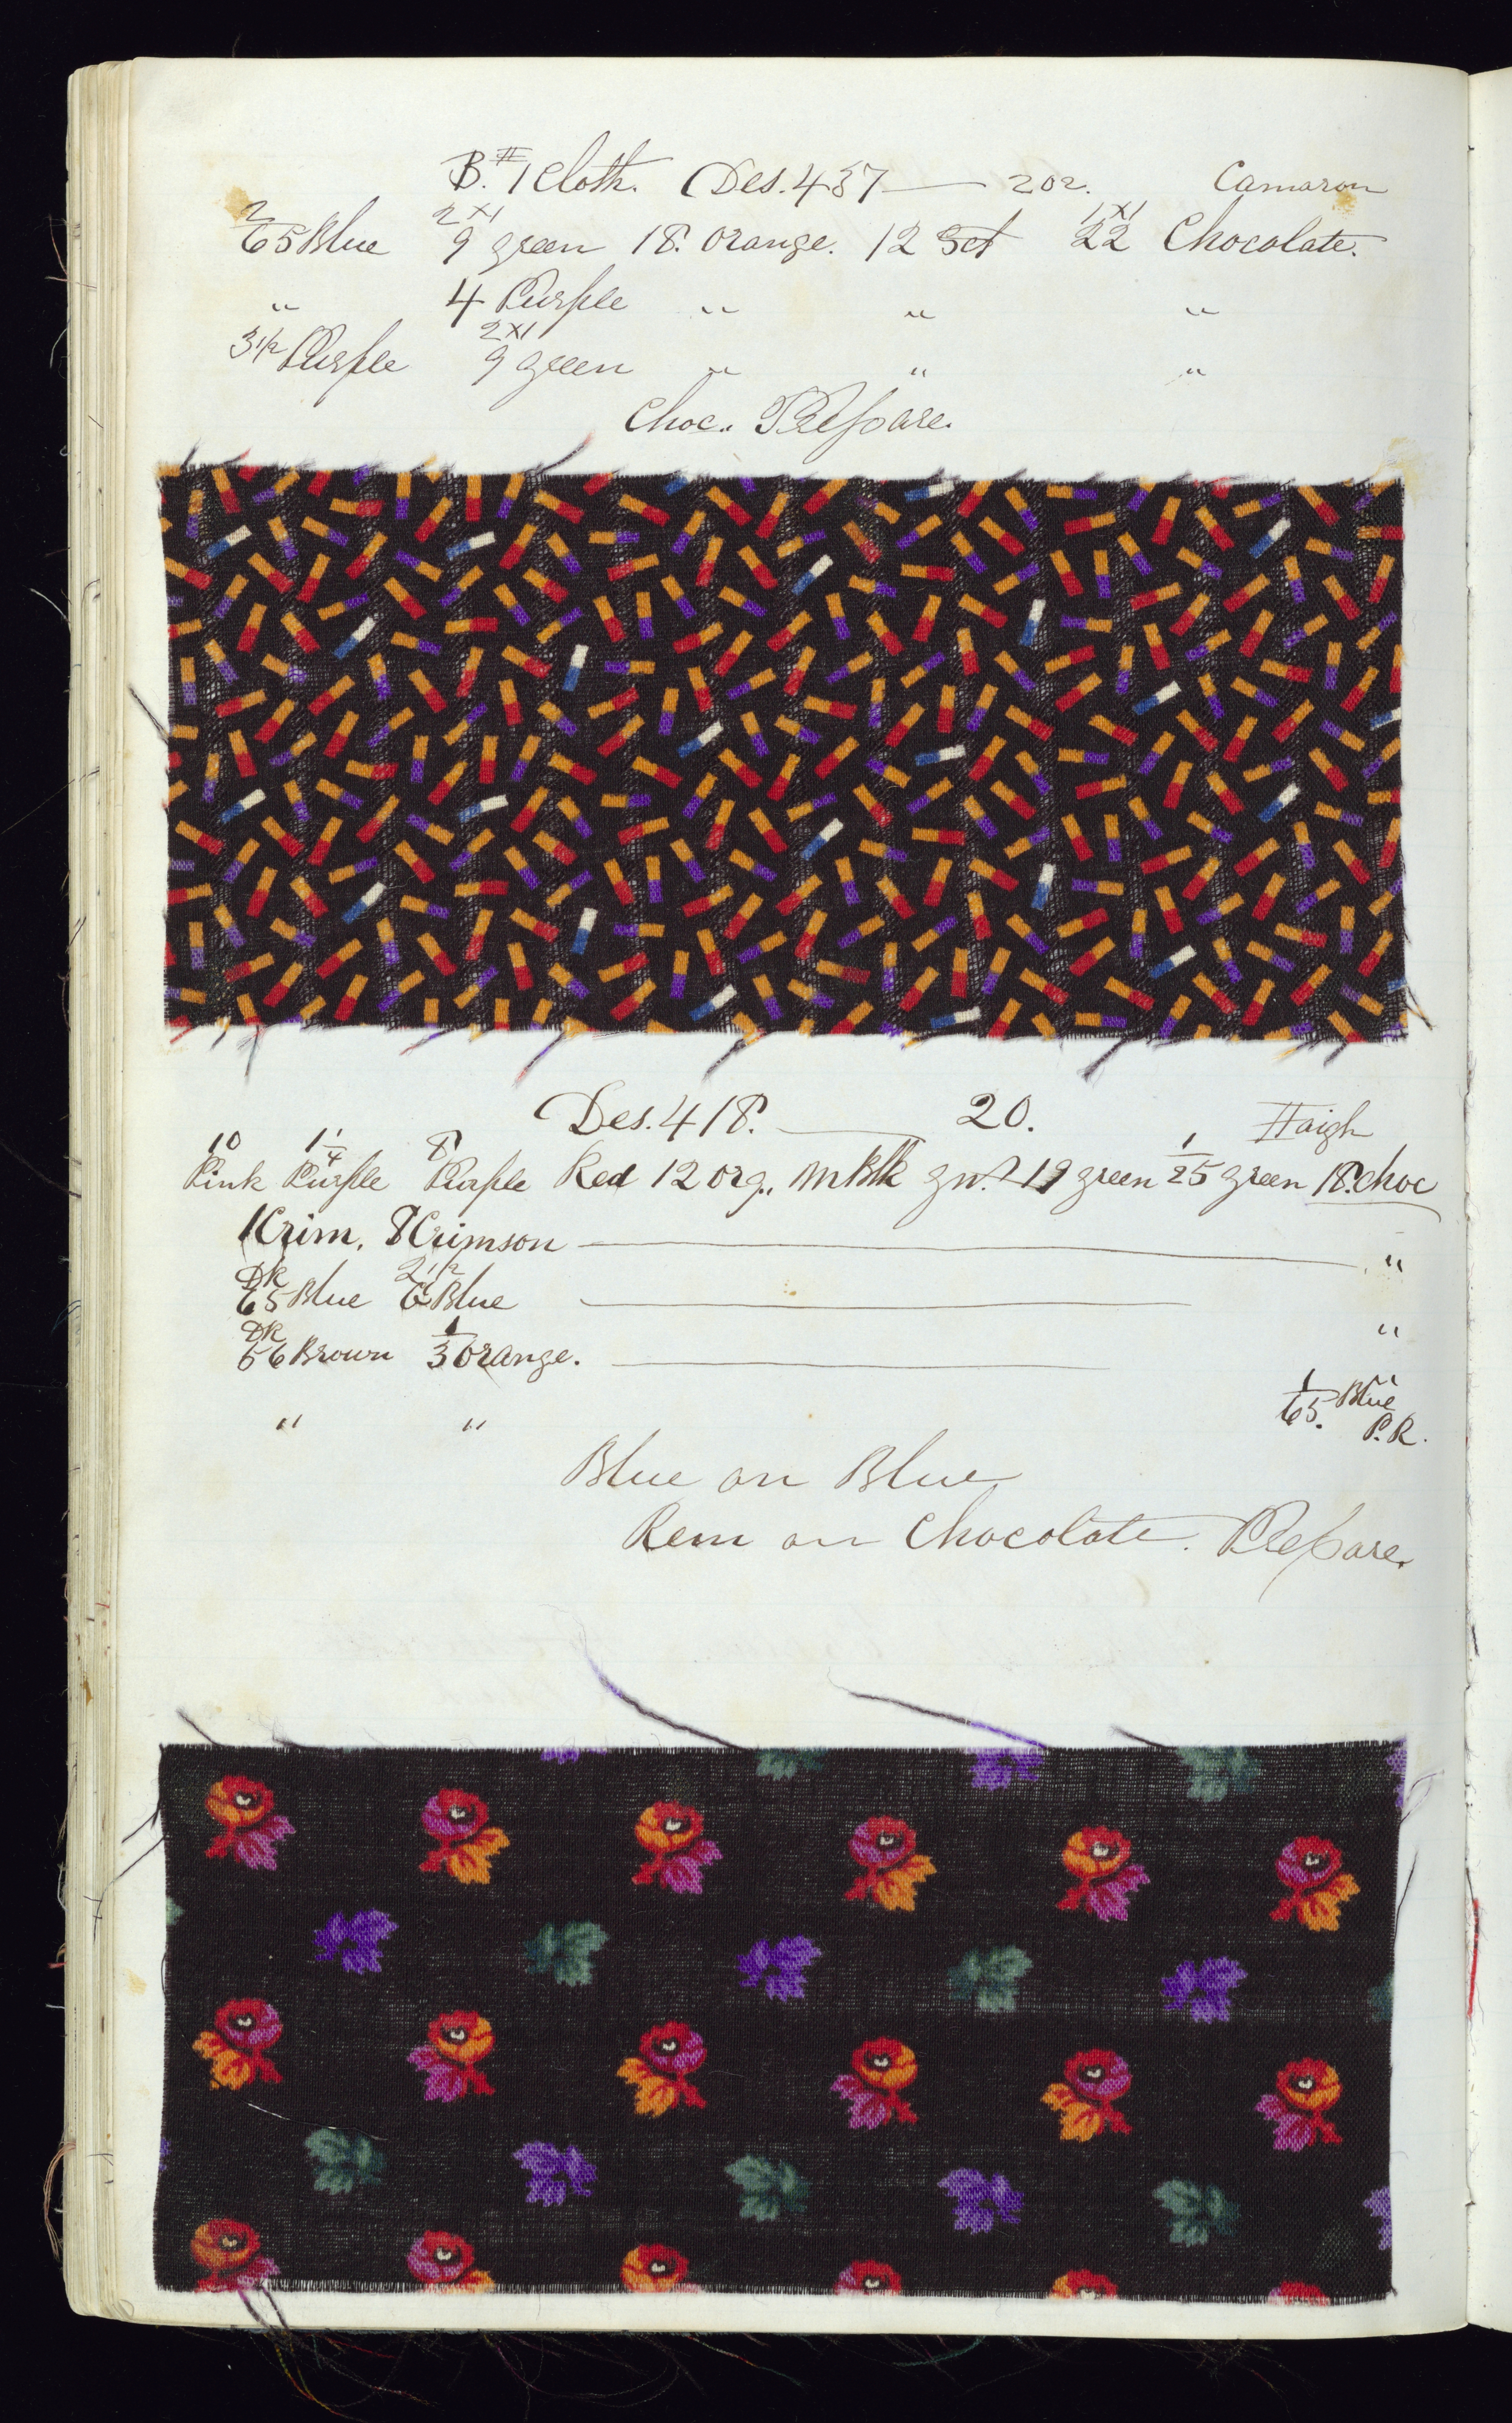 B. #1 Cloth. Des. 437 — 202. Camaron
2/65 Blue 2x1 9 green 18. Orange. 12 Sct 1x1 22 Chocolate.
" 4 Purple " " "
3 1/2 Purple 2x1 9 green " " "
Choc.. Prepare.
Des. 418. — 20. Haigh
10 Pink 1 1/4 Purple 8 Purple Red 12 Org., M Blk 19 green 1/25 green 18. choc
1 Crim, 8 Crimson — "
DK 65 Blue 2 1/2 6 Blue — "
DK 56 Brown 1/3 Orange. — "
" " 1/65. Blue P.R.
Blue on Blue
Rem on Chocolate. Prepare.